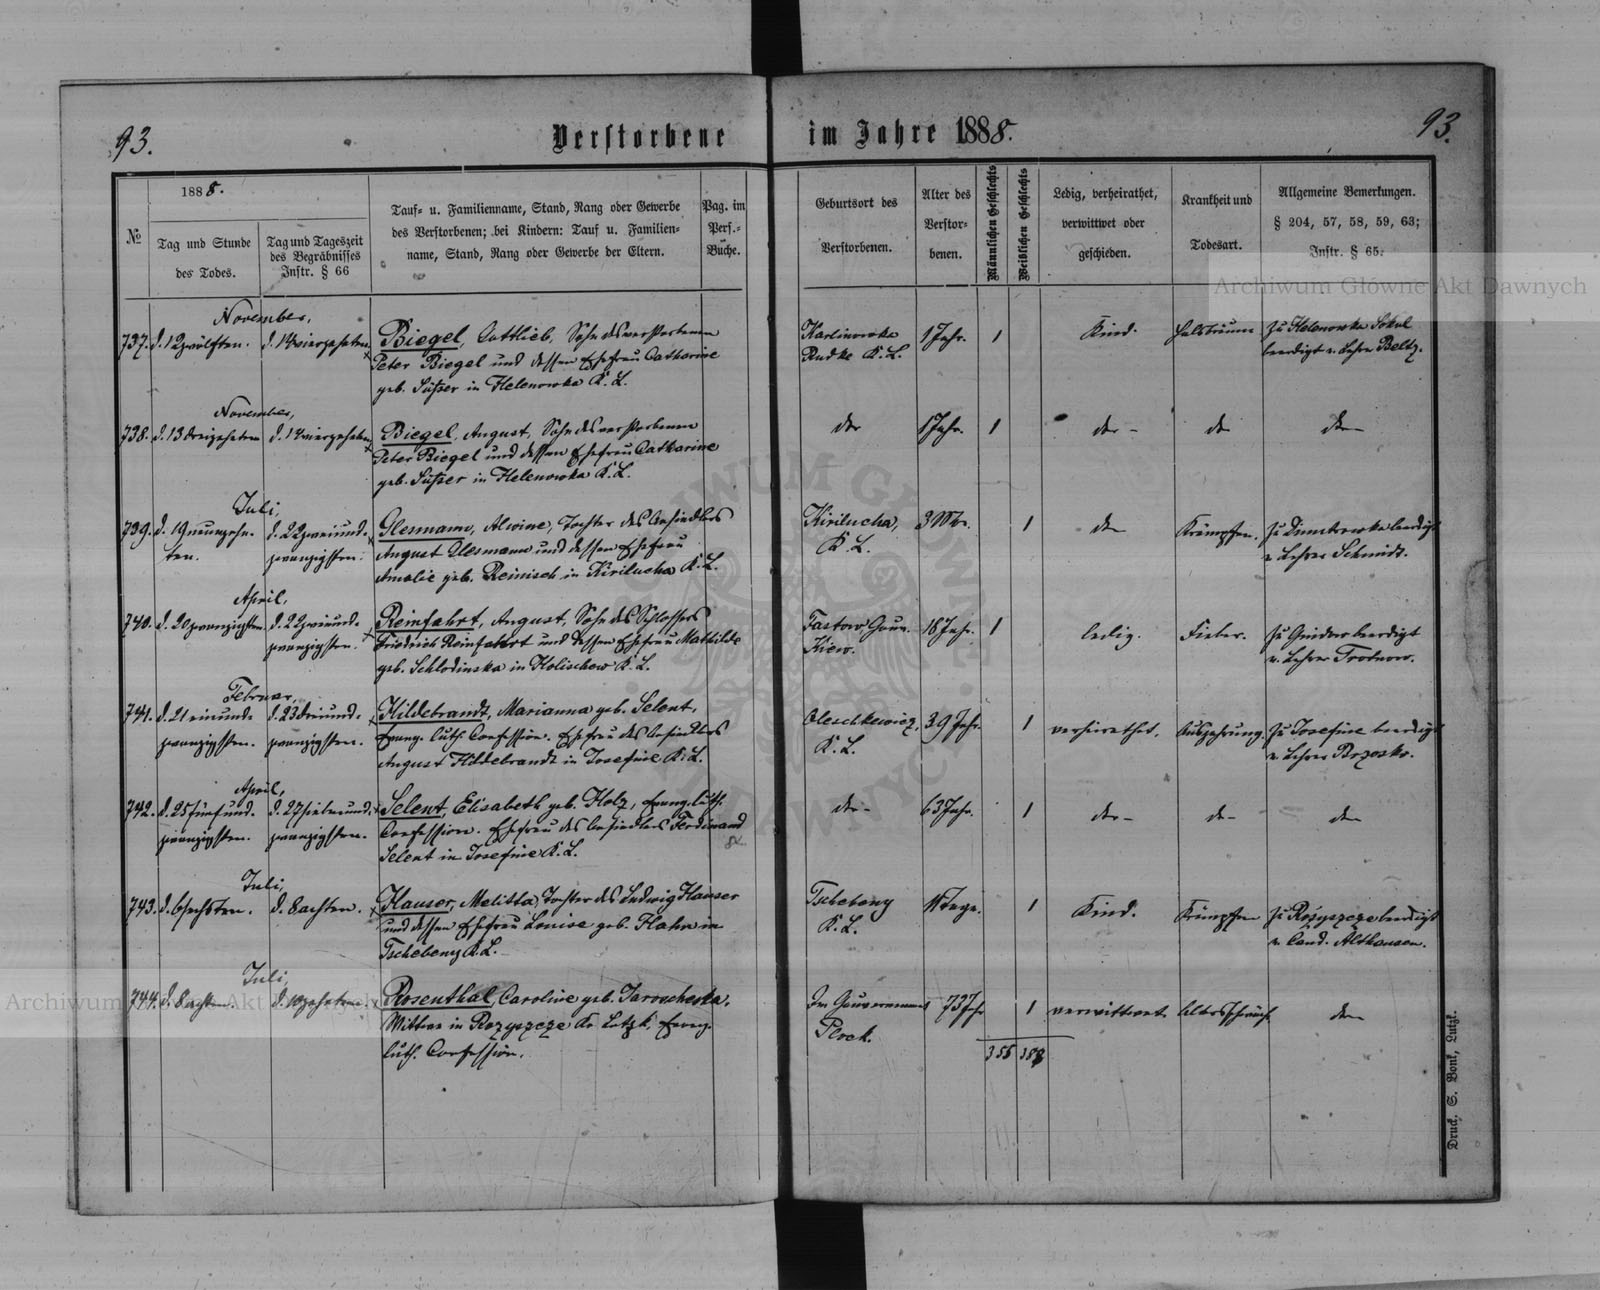 93.
Verstorbene im Jahre 1888.
93.
№
1888.
Tag und Stunde
des Todes.
Tag und Tageszeit
des Begräbnisses
Instr. § 66
Tauf- u. Familienname, Stand, Rang oder Gewerbe
des Verstorbenen; bei Kindern: Tauf u. Familien-
name, Stand, Rang oder Gewerbe der Eltern.
Pag. im
Pers.-
Büche.
Geburtsort des
Verstorbenen.
Alter des
Verstor-
benen.
Männlichen Geschlechts
Weiblichen Geschlechts
Ledig, verheirathet,
verwittwet oder
geschieden.
Krankheit und
Todesart.
Allgemeine Bemerkungen.
§ 204, 57, 58, 59, 63;
Instr. § 65.
Archiwum Główne Akt Dawnych
November,
737. d. 12 zwölften. d. 14 vierzehnten. Biegel, Gottlieb, Sohn des verstorbenen
Peter Biegel und dessen Ehefrau Catharine
geb. Süßer in Helenowka K. L.
Karlinowka
Rudke K. L.
1 Jahr. 1 Kind. Halsbräune
zu Helenowka Sokul
beerdigt v. Lehrer Beltz.
November,
738. d. 13 dreizehnten d. 14 vierzehnten Biegel, August, Sohn des verstorbenen
Peter Biegel und dessen Ehefrau Catharine
geb. Süßer in Helenowka K. L.
1 Jahr. 1
Juli,
739. d. 19 neunzehn-
ten.
d. 22 zweiund-
zwanzigsten.
Glesmann, Alwine, Tochter des Ansiedlers
August Glesmann und dessen Ehefrau
Amalie geb. Reinisch in Kirilucha K. L.
Kirilucha,
K. L.
3 Mt. 1 Krämpfen.
beerdigt
v. Lehrer Schmidt.
April,
740. d. 20 zwanzigsten d. 22 zweiund-
zwanzigsten.
Reinfahrt, August, Sohn des Schlossers
Friedrich Reinfahrt und dessen Ehefrau Mathilde
geb. Schlodinska in Holischew K. L.
Fastow Gouv.
Kiew.
18 Jahr. 1 ledig. Fieber.
beerdigt
v. Lehrer
Februar,
741. d. 21 einund-
zwanzigsten.
d. 23 dreiund-
zwanzigsten.
Hildebrandt, Marianna geb. Selent,
Evang. luth. Confession. Ehefrau des Ansiedlers
August Hildebrandt in Josefine K. L.
Oleschkewicz,
K. L.
39 Jahr. 1 verheirathet. Auszehrung.
zu Josefine beerdigt
v. Lehrer
April,
742. d. 25 fünfund-
zwanzigsten.
d. 27 siebenund-
zwanzigsten.
Selent, Elisabeth geb. Holz, Evang. luth.
Confession. Ehefrau des Ansiedlers Ferdinand
Selent in Josefine K. L.
63 Jahr. 1
Juli,
743. d. 6 sechsten. d. 8 achten. Hauser, Melitta, Tochter des Ludwig Hauser
und dessen Ehefrau Louise geb. Hahn in
Tschebeny K. L.
Tschebeny
K. L.
Tage. 1 Kind. Krämpfen
zu Rożyszcze beerdigt
v. Cand. Althausen.
Juli
744. d. 8 achten. d. 10 zehnten. Rosenthal, Caroline geb. Jaroscheska,
Wittwe in Rozyszcze Kr. Lutzk, Evang.
luth. Confession.
Im Gouvernement
Plock.
73 Jahr 1 verwittwet Altersschwäch.
Druck. S. Bonk, Lutzk.